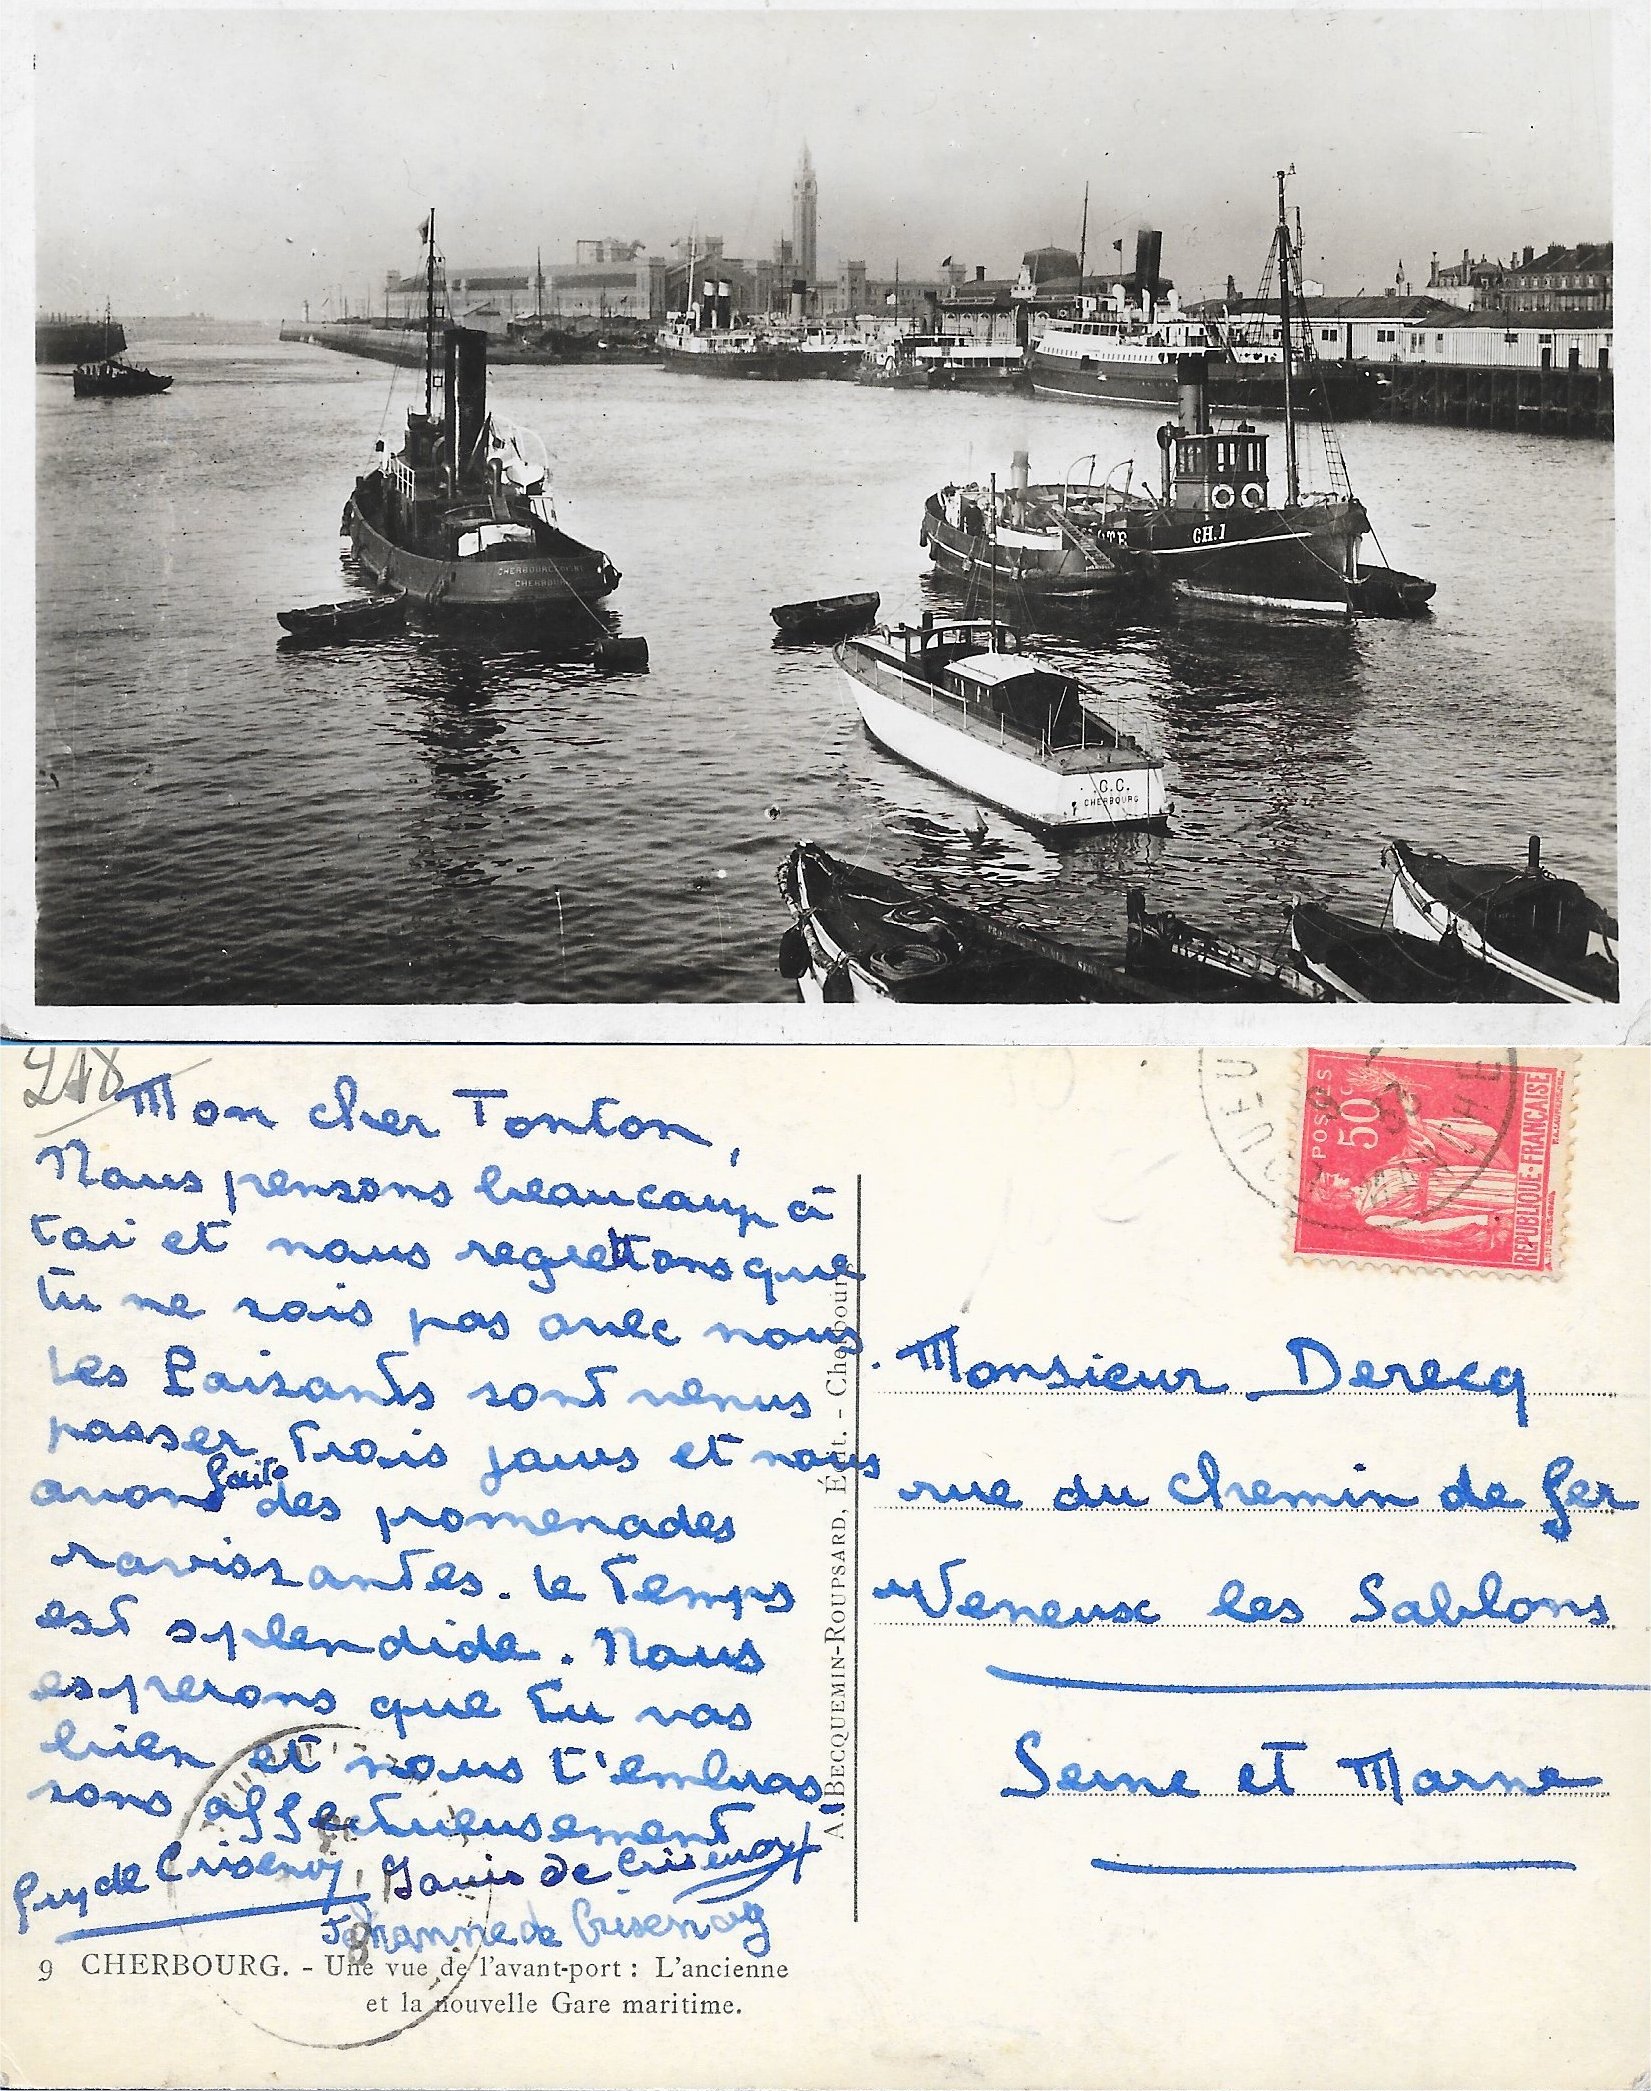 CHERBOURG
CH.1
C.C.
CHERBOURG
218
Mon cher Tonton,
Nous pensons beaucoup à
toi et nous regrettons que
tu ne sois pas avec nous.
Les Paisants sont venus
passer trois jours et nous
avons faits des promenades
ravissantes. Le temps
est splendide. Nous
esperons que tu vas
bien et nous t'embras
sons affectueusement
Guy de Crisenoy, Louis de Crisenoy
Jehanne de Crisenoy
9 CHERBOURG. - Une vue de l'avant-port : L'ancienne
et la nouvelle Gare maritime.
A. BECQUEMIN-ROUPSARD, Édit. - Cherbourg
POSTES
50c
REPUBLIQUE-FRANÇAISE
MANCHE
Monsieur Derecq
rue du chemin de fer
Veneux les Sablons
Seine et Marne